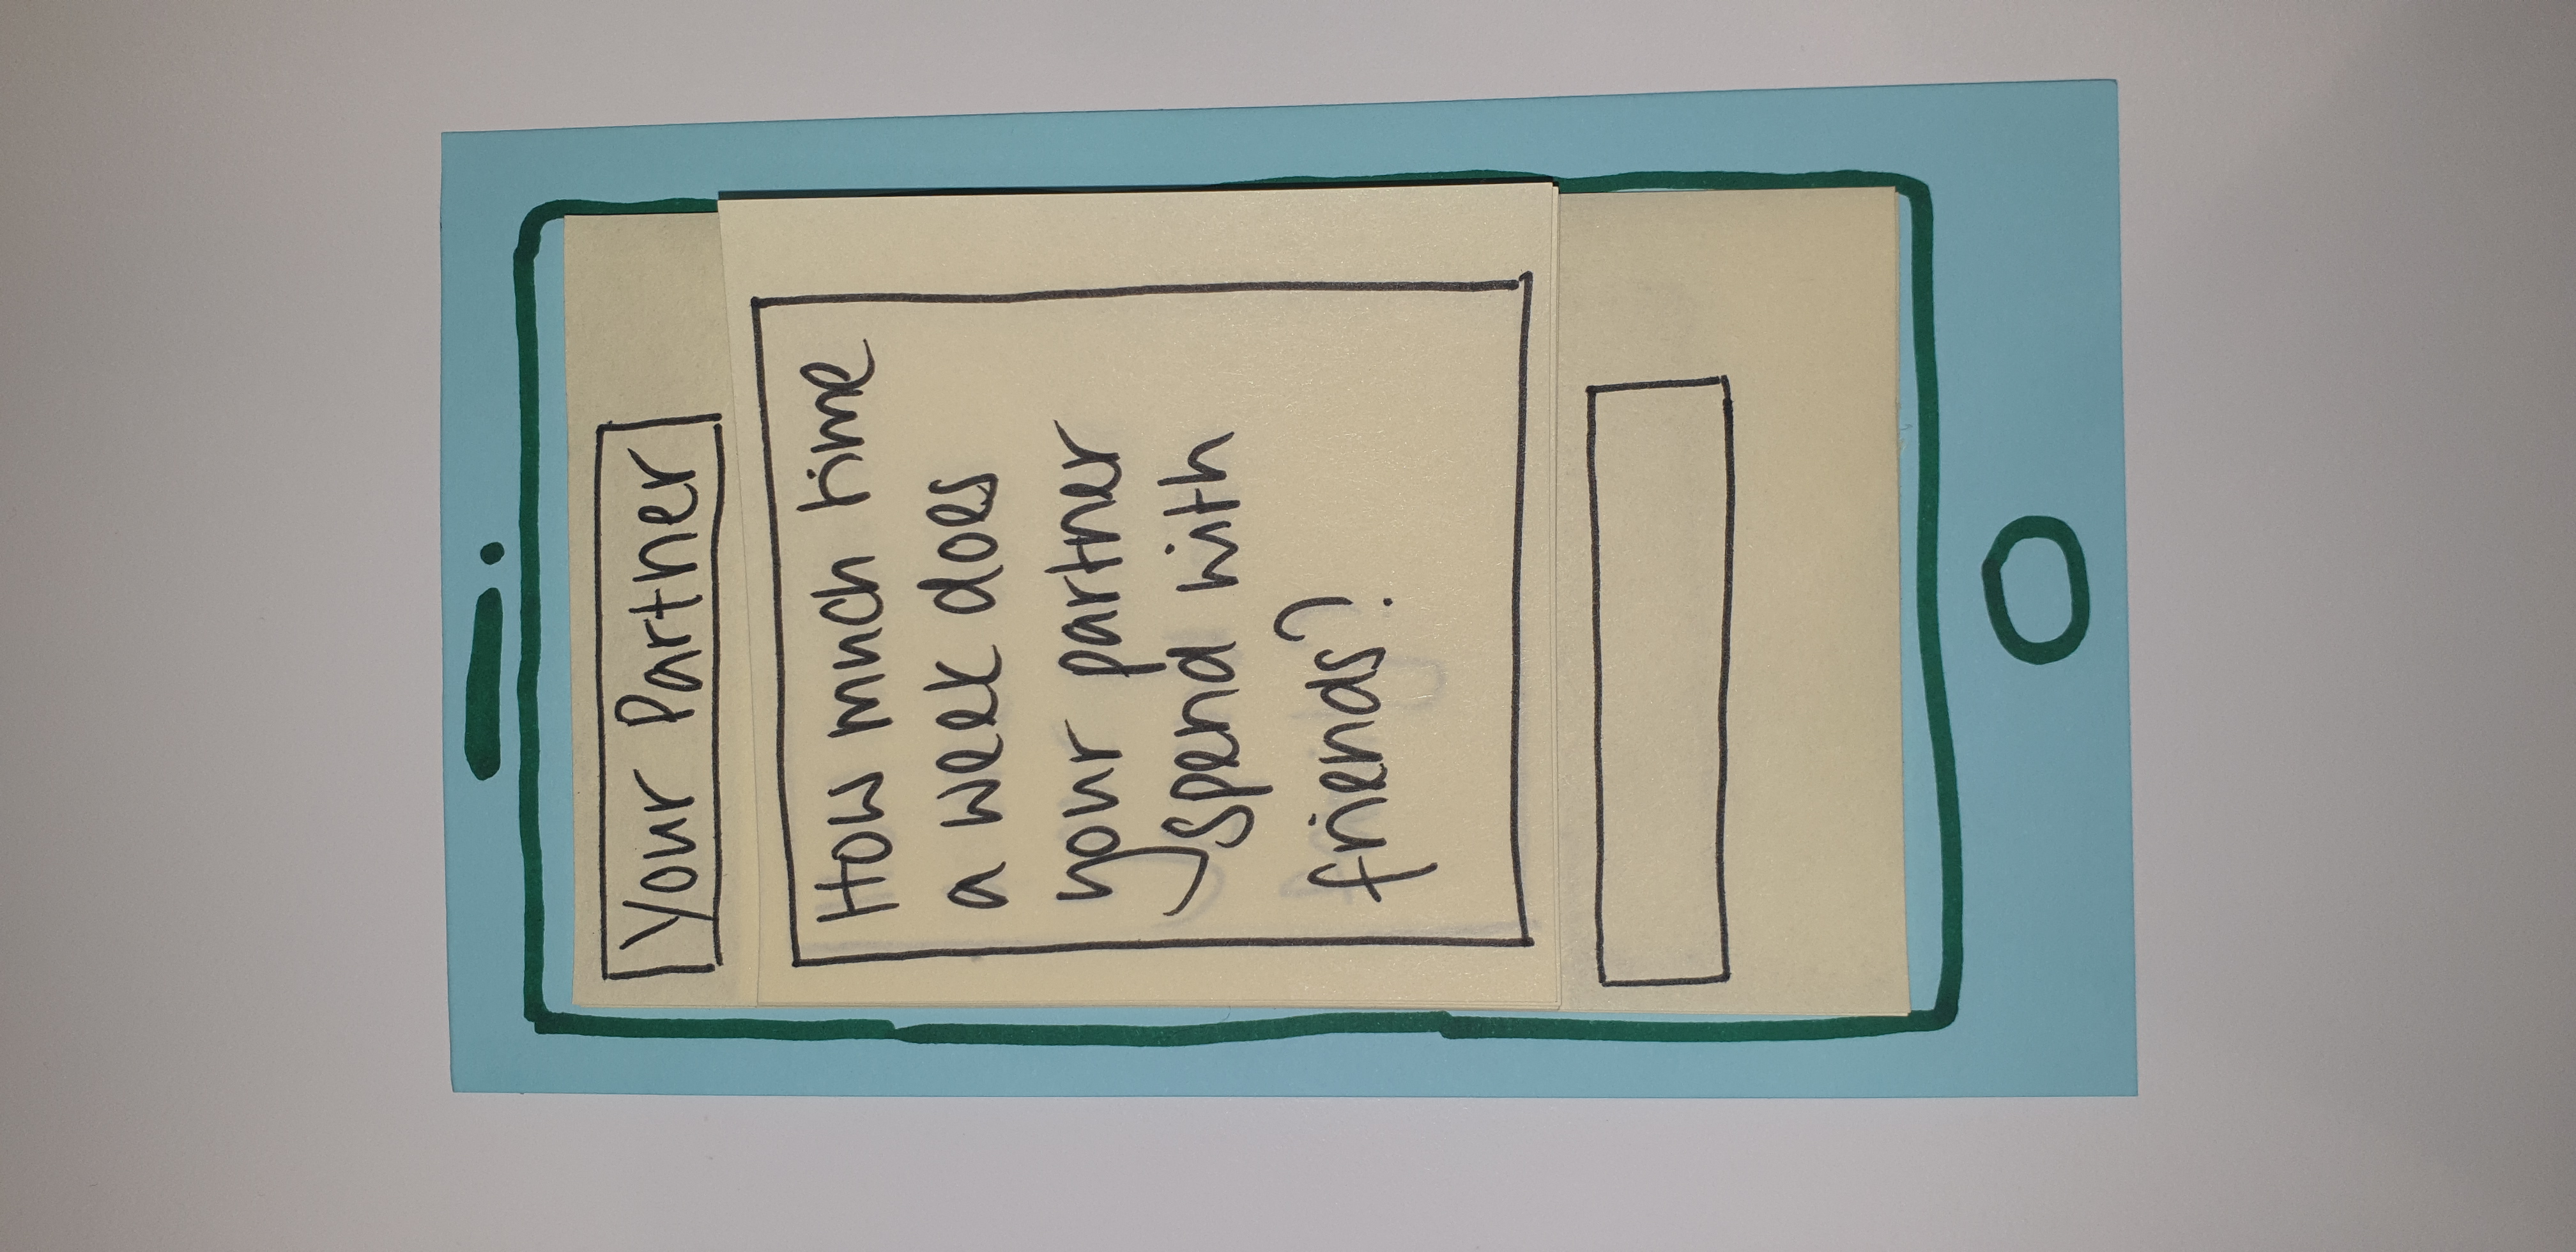 Your Partner
How much time
a week does
your partner
spend with
friends?